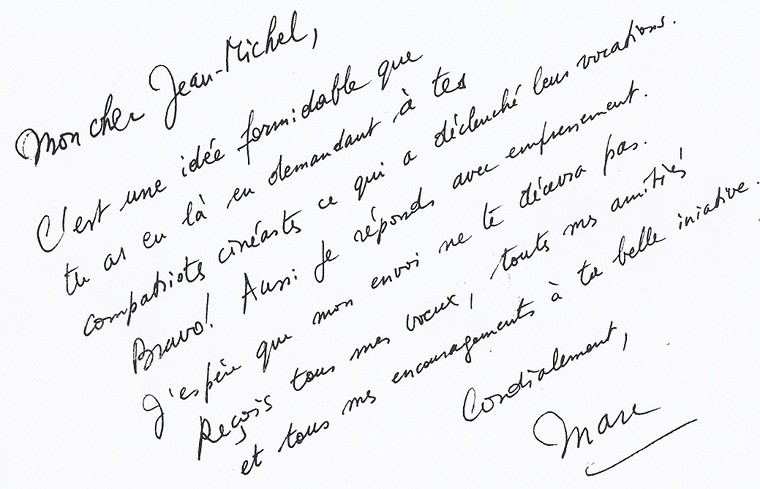 Mon cher Jean-Michel,
C'est une idée formidable que
tu as eu là en demandant à tes
compatriotes cinéastes ce qui a déclenché leurs vocations.
Bravo! Aussi je réponds avec empressement.
J'espère que mon envoi ne te décevra pas.
Reçois tous mes voeux, toutes mes amitiés
et tous mes encouragements à ta belle iniative.
Cordialement,
Marc